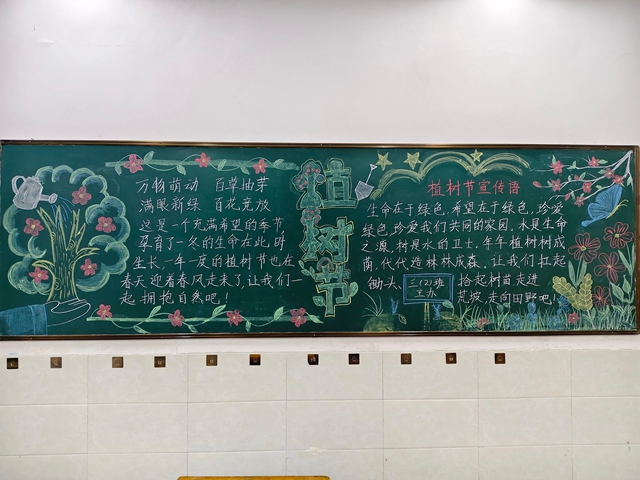 万物萌动 百草抽芽
满眼新绿 百花竞放
这是一个充满希望的季节
孕育了一冬的生命在此时
生长,一年一度的植树节也在
春天迎着春风走来了,让我们一
起拥抱自然吧!
植树节
植树节宣传语
生命在于绿色,希望在于绿色,珍爱
绿色,珍爱我们共同的家园,水是生命
之源,树是水的卫士,年年植树树成
荫,代代造林林成森,让我们扛起
锄头,
拾起树苗走进
荒坡,走向田野吧!
三(2)班
主办